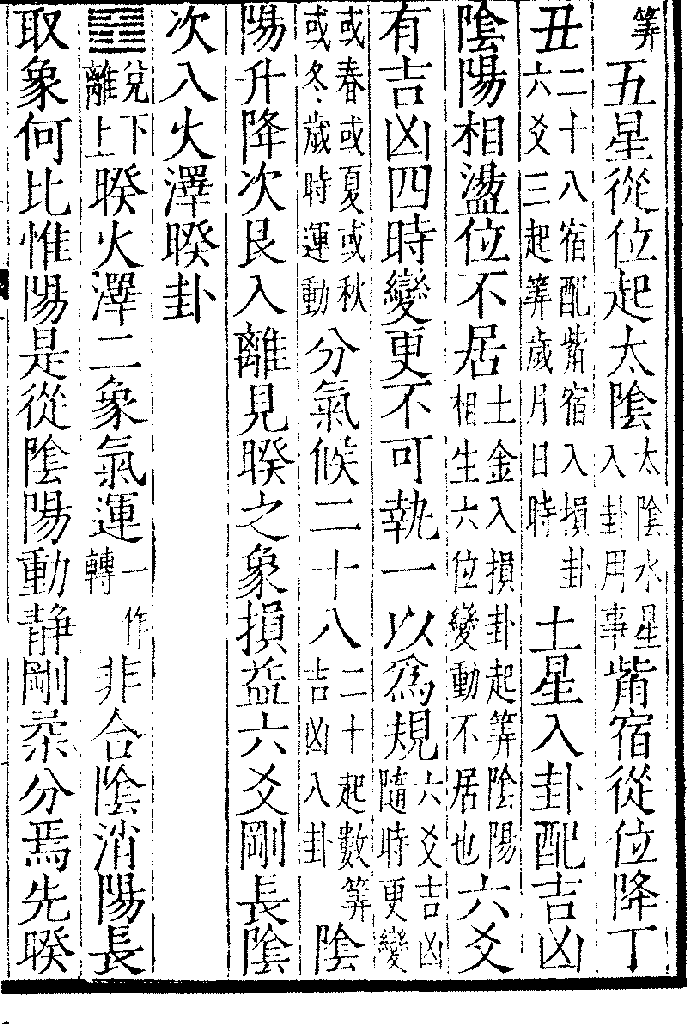 筭五星從位起太陰太陰水星入卦用事觜宿從位降丁
丑二十八宿配觜宿入損卦六爻三起筭歲月日時土星入卦配吉凶
陰陽相盪位不居土金入損卦起筭陰陽相生六位變動不居也六爻
有吉凶四時變更不可執一以爲規六爻吉凶隨時更變
或春或夏或秋或冬歲時運動分氣候二十八二十起數筭吉凶入卦陰
陽升降次艮入離見睽之象損益六爻剛長陰
次入火澤睽卦
䷥兌下離上睽火澤二象氣運一作轉非合陰消陽長
取象何比惟陽是從陰陽動静剛柔分焉先睽